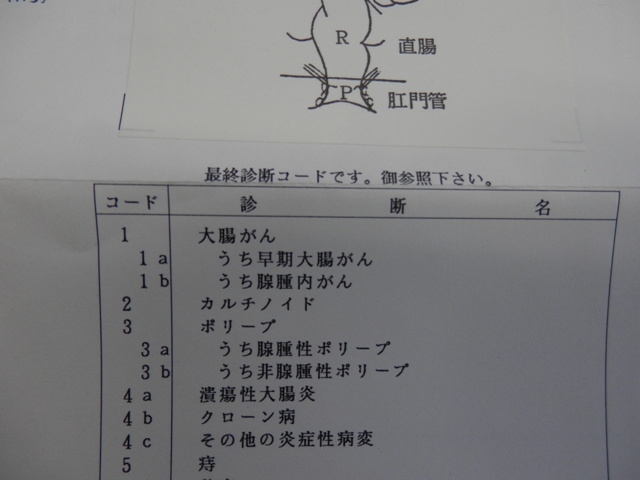 R
直腸
P
肛門管
最終診断コードです。御参照下さい。
コード 診 断 名
1 大腸がん
1 a うち早期大腸がん
1 b うち腺腫内がん
2 カルチノイド
3 ポリープ
3 a うち腺腫性ポリープ
3 b うち非腺腫性ポリープ
4 a 潰瘍性大腸炎
4 b クローン病
4 c その他の炎症性病変
5 痔